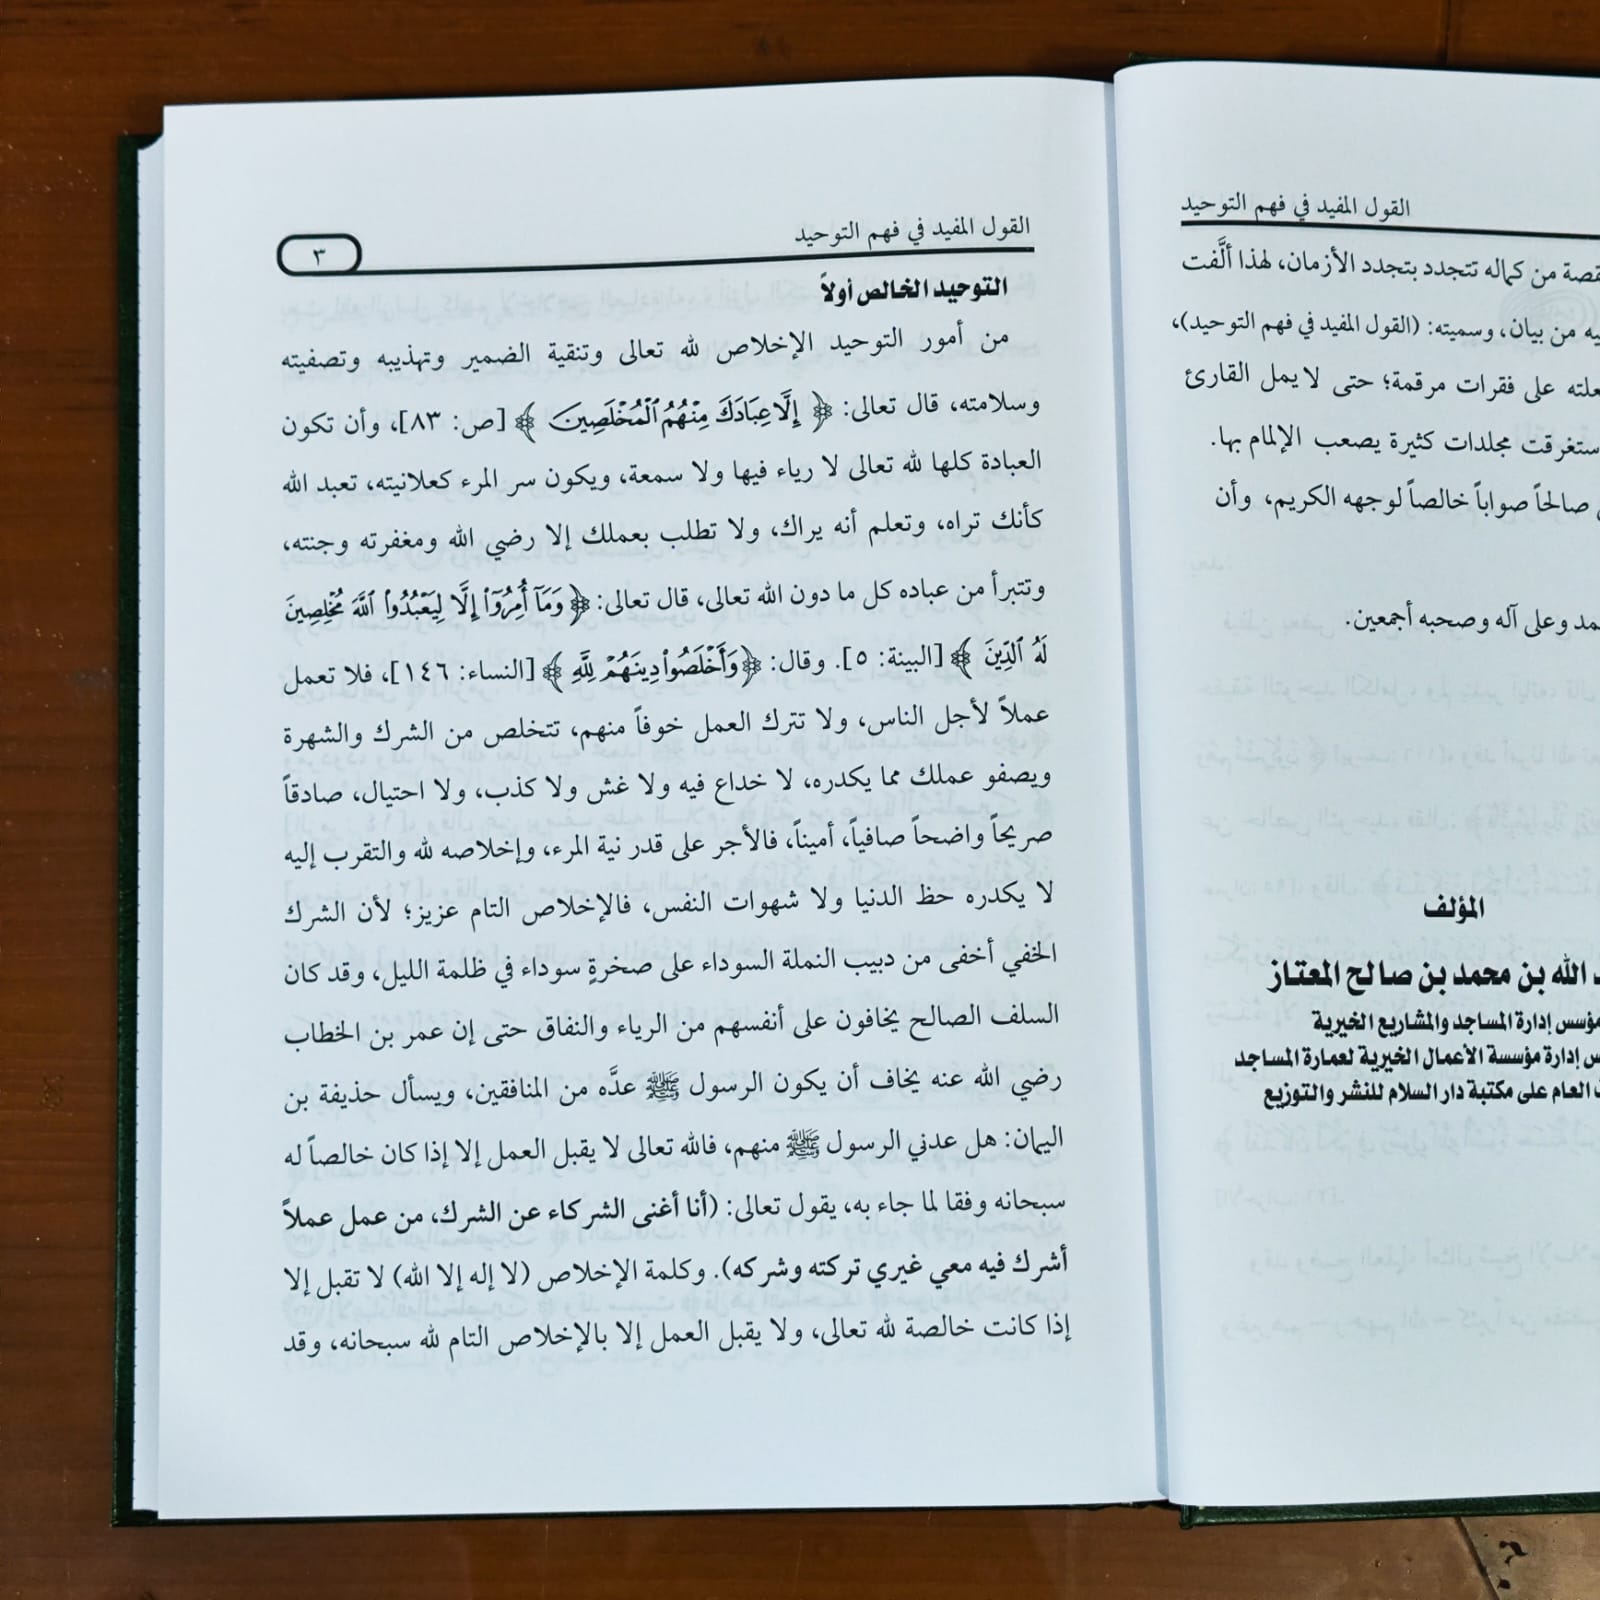 القول المفيد في فهم التوحيد
من كماله تتجدد بتجدد الأزمان، لهذا ألَّفت
من بيان، وسميته: (القول المفيد في فهم التوحيد)،
على فقرات مرقمة؛ حتى لا يمل القارئ
مجلدات كثيرة يصعب الإلمام بها.
صالحاً صواباً خالصاً لوجهه الكريم، وأن
وعلى آله وصحبه أجمعين.
المؤلف
الله بن محمد بن صالح المعتاز
إدارة المساجد والمشاريع الخيرية
إدارة مؤسسة الأعمال الخيرية لعمارة المساجد
العام على مكتبة دار السلام للنشر والتوزيع
القول المفيد في فهم التوحيد
٣
التوحيد الخالص أولاً
من أمور التوحيد الإخلاص لله تعالى وتنقية الضمير وتهذيبه وتصفيته
وسلامته، قال تعالى: ﴿ إِلَّا عِبَادَكَ مِنْهُمُ ٱلْمُخْلَصِينَ ﴾ [ص: ٨٣]، وأن تكون
العبادة كلها لله تعالى لا رياء فيها ولا سمعة، ويكون سر المرء كعلانيته، تعبد الله
كأنك تراه، وتعلم أنه يراك، ولا تطلب بعملك إلا رضي الله ومغفرته وجنته،
وتتبرأ من عباده كل ما دون الله تعالى، قال تعالى: ﴿ وَمَآ أُمِرُوٓا۟ إِلَّا لِيَعْبُدُوا۟ ٱللَّهَ مُخْلِصِينَ
لَهُ ٱلدِّينَ ﴾ [البينة: ٥]. وقال: ﴿ وَأَخْلَصُوا۟ دِينَهُمْ لِلَّهِ ﴾ [النساء: ١٤٦]، فلا تعمل
عملاً لأجل الناس، ولا تترك العمل خوفاً منهم، تتخلص من الشرك والشهرة
ويصفو عملك مما يكدره، لا خداع فيه ولا غش ولا كذب، ولا احتيال، صادقاً
صريحاً واضحاً صافياً، أميناً، فالأجر على قدر نية المرء، وإخلاصه لله والتقرب إليه
لا يكدره حظ الدنيا ولا شهوات النفس، فالإخلاص التام عزيز؛ لأن الشرك
الخفي أخفى من دبيب النملة السوداء على صخرةٍ سوداء في ظلمة الليل، وقد كان
السلف الصالح يخافون على أنفسهم من الرياء والنفاق حتى إن عمر بن الخطاب
رضي الله عنه يخاف أن يكون الرسول ﷺ عدَّه من المنافقين، ويسأل حذيفة بن
اليمان: هل عدني الرسول ﷺ منهم، فالله تعالى لا يقبل العمل إلا إذا كان خالصاً له
سبحانه وفقا لما جاء به، يقول تعالى: (أنا أغنى الشركاء عن الشرك، من عمل عملاً
أشرك فيه معي غيري تركته وشركه). وكلمة الإخلاص (لا إله إلا الله) لا تقبل إلا
إذا كانت خالصة لله تعالى، ولا يقبل العمل إلا بالإخلاص التام لله سبحانه، وقد